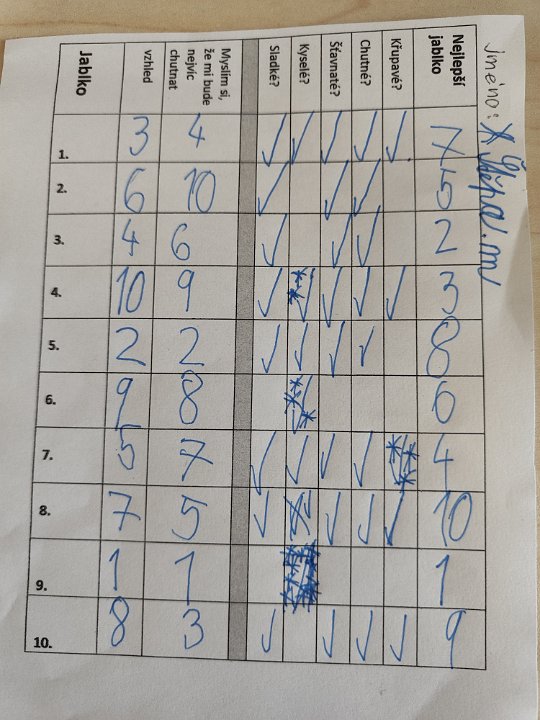 jméno: Štěpán
Nejlepší jablko 7 5 2 3 8 6 4 10 1 9
Křupavé? ✓ ✓ ✓ ✓
Chutné? ✓ ✓ ✓ ✓ ✓ ✓ ✓ ✓
Šťavnaté? ✓ ✓ ✓ ✓ ✓ ✓ ✓ ✓
Kyselé? ✓ ✓ ✓
Sladké? ✓ ✓ ✓ ✓ ✓ ✓ ✓ ✓
Myslím si,
že mi bude
nejvíc
chutnat 4 10 6 9 2 8 7 5 1 3
vzhled 3 6 4 10 2 9 5 7 1 8
Jablko 1. 2. 3. 4. 5. 6. 7. 8. 9. 10.